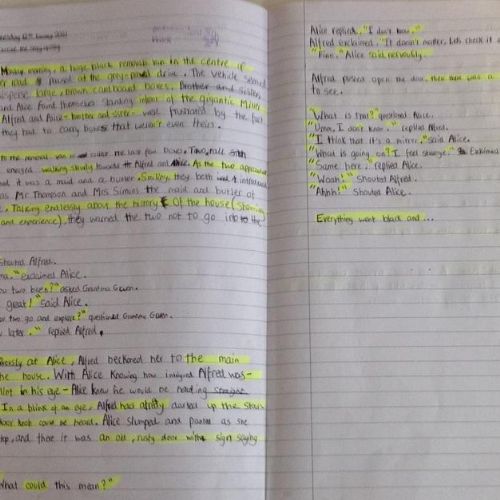 Monday morning, a huge black removal van in the centre of
road paused at the grey paved drive. The vehicle seemed
large, brown cardboard boxes. Brother and Sister
and Alice found themselves standing infront of the gigantic
Alfred and Alice - brother and sister - was frustrated by the fact
they had to carry boxes that weren't even theirs.
to the removal van to collect the last few boxes, Two, tall
emerged walking slowly towards Alfred and Alice. As the two approached
it was a maid and a butler. Smiley, they both introduced
as Mr Thompson and Mrs Simons the maid and butler of
Talking endlessly about the history of the house
and experience), they warned the two not to go into the
Shouted Alfred.
exclaimed Alice.
you two been?" asked Grandma Gwen.
great!" said Alice.
you two go and explore?" questioned Grandma Gwen.
later." replied Alfred.
at Alice, Alfred beckoned her to the main
the house. With Alice knowing how intrigued Alfred was -
glint in his eye - Alice knew he would be heading straight
In a blink of an eye, Alfred had darted up the stairs
could be heard. Alice slumped and panted as she
and there it was an old, rusty door with a sign saying
What could this mean?"
Alice replied, "I don't know."
Alfred exclaimed, "It doesn't matter, lets check it
"Fine." Alice said nervously.
Alfred pushed open the door, then there was a
to see.
"What is that?" questioned Alice.
"Umm, I don't know." replied Alfred.
"I think that it's a mirror." said Alice.
"What is going on? I feel strange." Exclaimed
"Same here." replied Alice.
"Woah!" Shouted Alfred.
"Ahhh!" Shouted Alice.
Everything went black and...